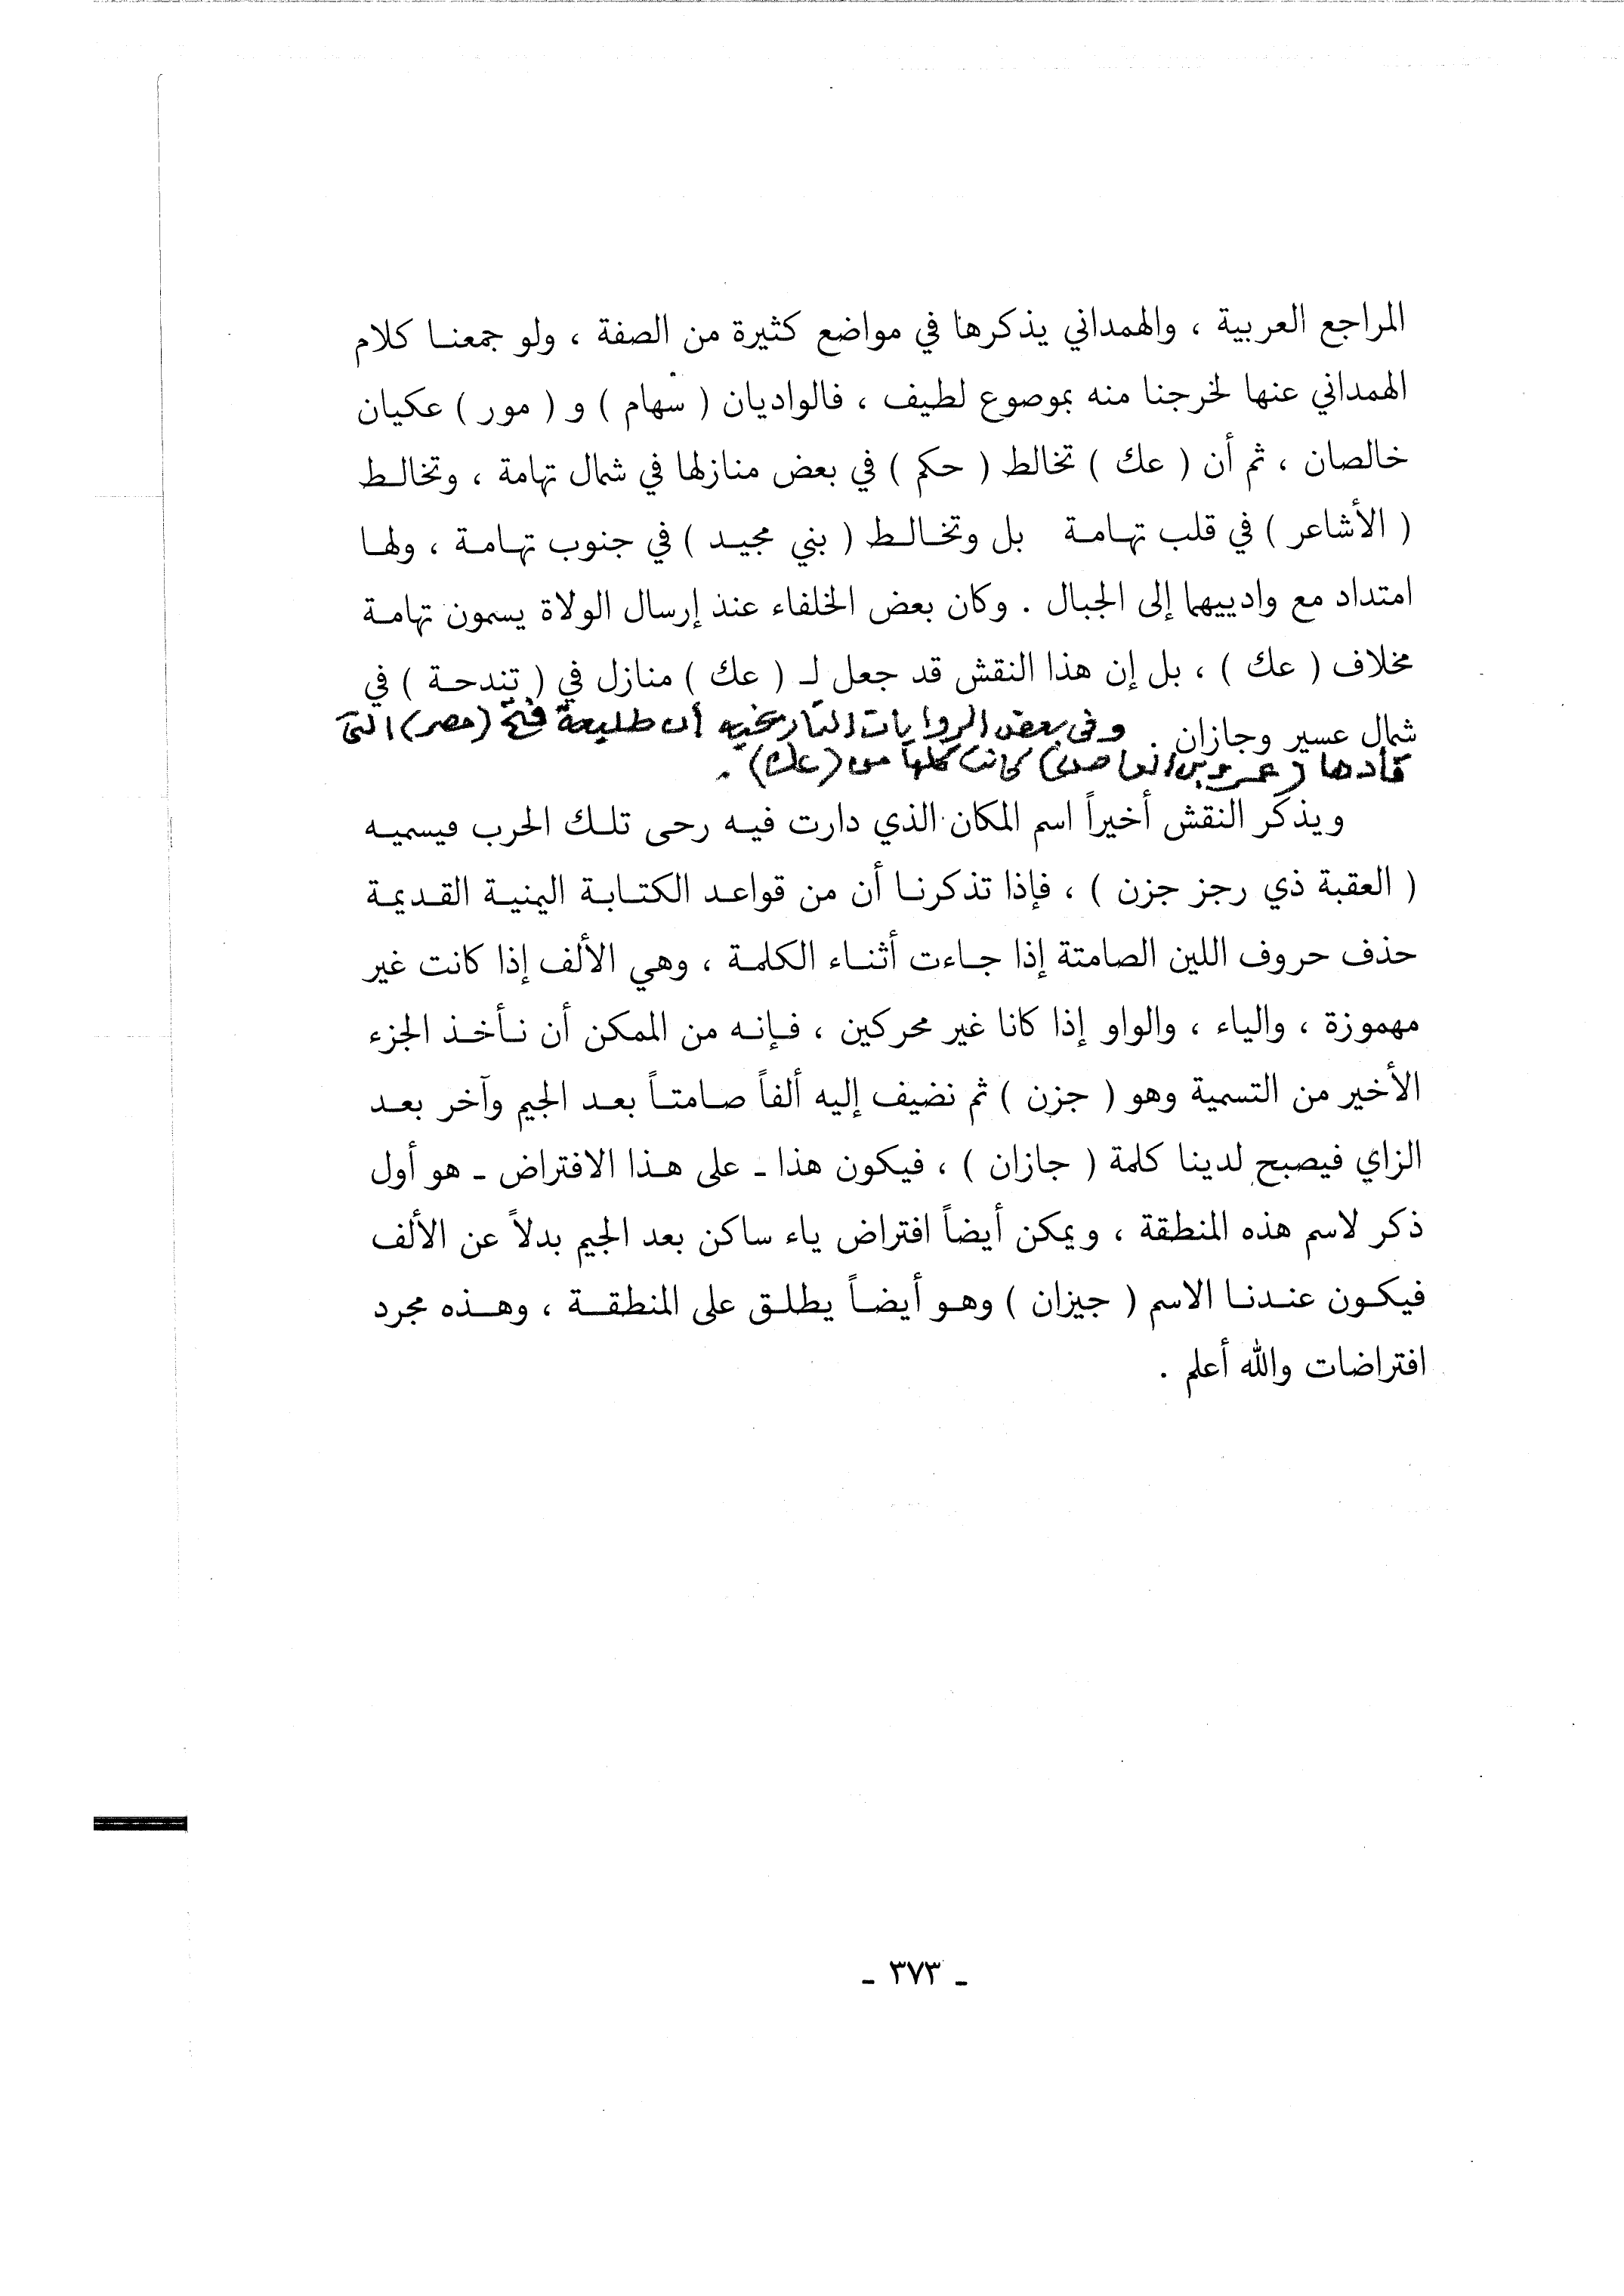 المراجع العربية ، والهمداني يذكرها في مواضع كثيرة من الصفة ، ولو جمعنا كلام
الهمداني عنها لخرجنا منه بموصوع لطيف ، فالواديان ( سهام ) و ( مور ) عكيان
خالصان ، ثم أن ( عك ) تخالط ( حكم ) في بعض منازلها في شمال تهامة ، وتخالط
( الأشاعر ) في قلب تهامة بل وتخالط ( بني مجيد ) في جنوب تهامة ، ولها
امتداد مع وادييهما إلى الجبال . وكان بعض الخلفاء عند إرسال الولاة يسمون تهامة
مخلاف ( عك ) ، بل إن هذا النقش قد جعل لـ ( عك ) منازل في ( تندحة ) في
شمال عسير وجازان . وفي بعض الروايات التاريخية أن طليعة فتح (مصر) التي
قادها (عمرو بن العاص) كانت كلها من (عك) .
ويذكر النقش أخيراً اسم المكان الذي دارت فيه رحى تلك الحرب فيسميه
( العقبة ذي رجز جزن ) ، فإذا تذكرنا أن من قواعد الكتابة اليمنية القديمة
حذف حروف اللين الصامتة إذا جاءت أثناء الكلمة ، وهي الألف إذا كانت غير
مهموزة ، والياء ، والواو إذا كانا غير محركين ، فإنه من الممكن أن نأخذ الجزء
الأخير من التسمية وهو ( جزن ) ثم نضيف إليه ألفاً صامتاً بعد الجيم وآخر بعد
الزاي فيصبح لدينا كلمة ( جازان ) ، فيكون هذا ـ على هذا الافتراض ـ هو أول
ذكر لاسم هذه المنطقة ، ويمكن أيضاً افتراض ياء ساكن بعد الجيم بدلاً عن الألف
فيكون عندنا الاسم ( جيزان ) وهو أيضاً يطلق على المنطقة ، وهذه مجرد
افتراضات والله أعلم .
ـ ٣٧٣ ـ